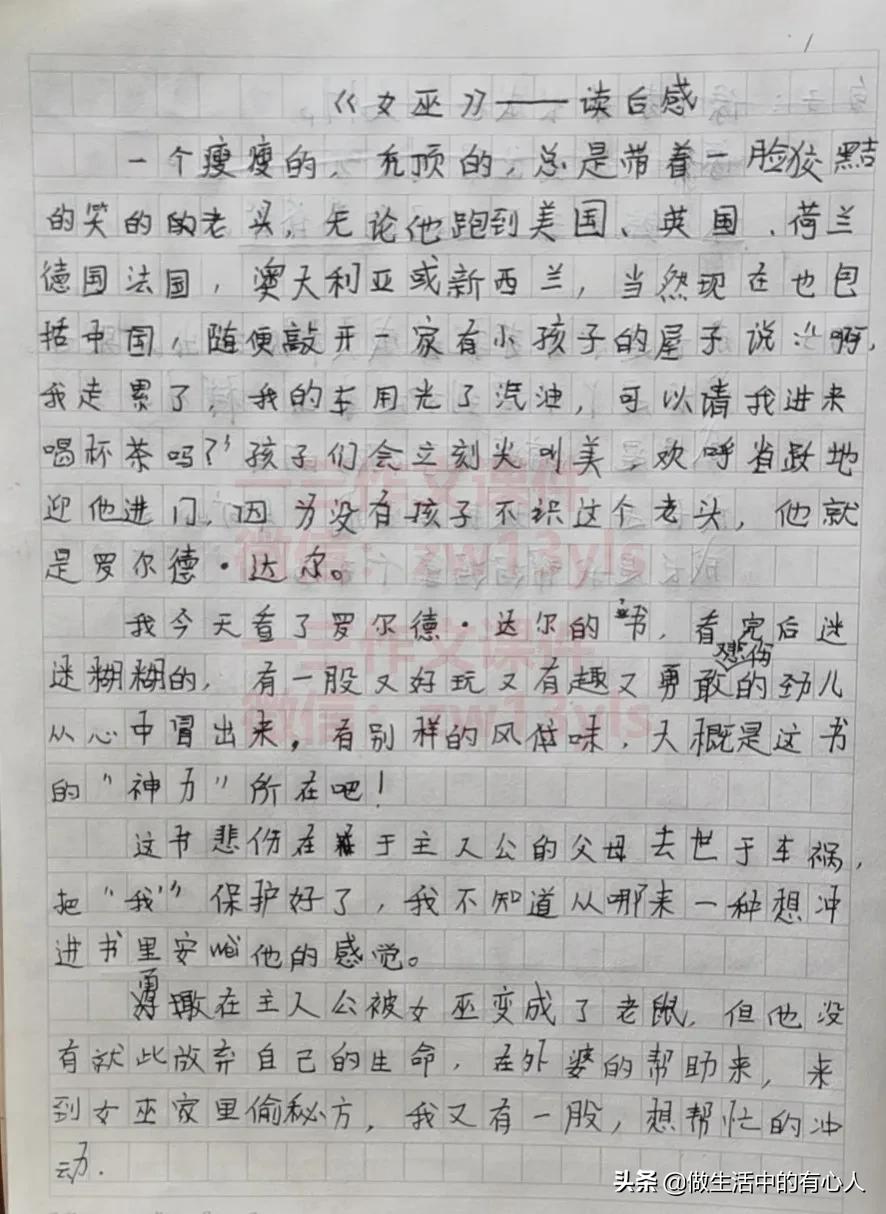 1
《女巫》——读后感
一个瘦瘦的，秃顶的，总是带着一脸狡黠
的笑的的老头，无论他跑到美国、英国、荷兰
德国法国，澳大利亚或新西兰，当然现在也包
括中国，随便敲开一家有小孩子的屋子说：“啊，
我走累了，我的车用光了汽油，可以请我进来
喝杯茶吗？”孩子们会立刻尖叫美，欢呼着地
迎他进门，因为没有孩子不识这个老头，他就
是罗尔德·达尔。
我今天看了罗尔德·达尔的书，看完后迷
悲伤
迷糊糊的，有一股又好玩又有趣又勇敢的劲儿
从心中冒出来，有别样的风味，大概是这书
的“神力”所在吧！
这书悲伤在于主人公的父母去世于车祸，
把“我”保护好了，我不知道从哪来一种想冲
进书里安慰他的感觉。
勇敢在主人公被女巫变成了老鼠，但他没
有就此放弃自己的生命，在外婆的帮助来，来
到女巫家里偷秘方，我又有一股，想帮忙的冲
动．
一三作文课件
微信：zw13yls
一三作文课件
微信：zw13yls
头条 @做生活中的有心人